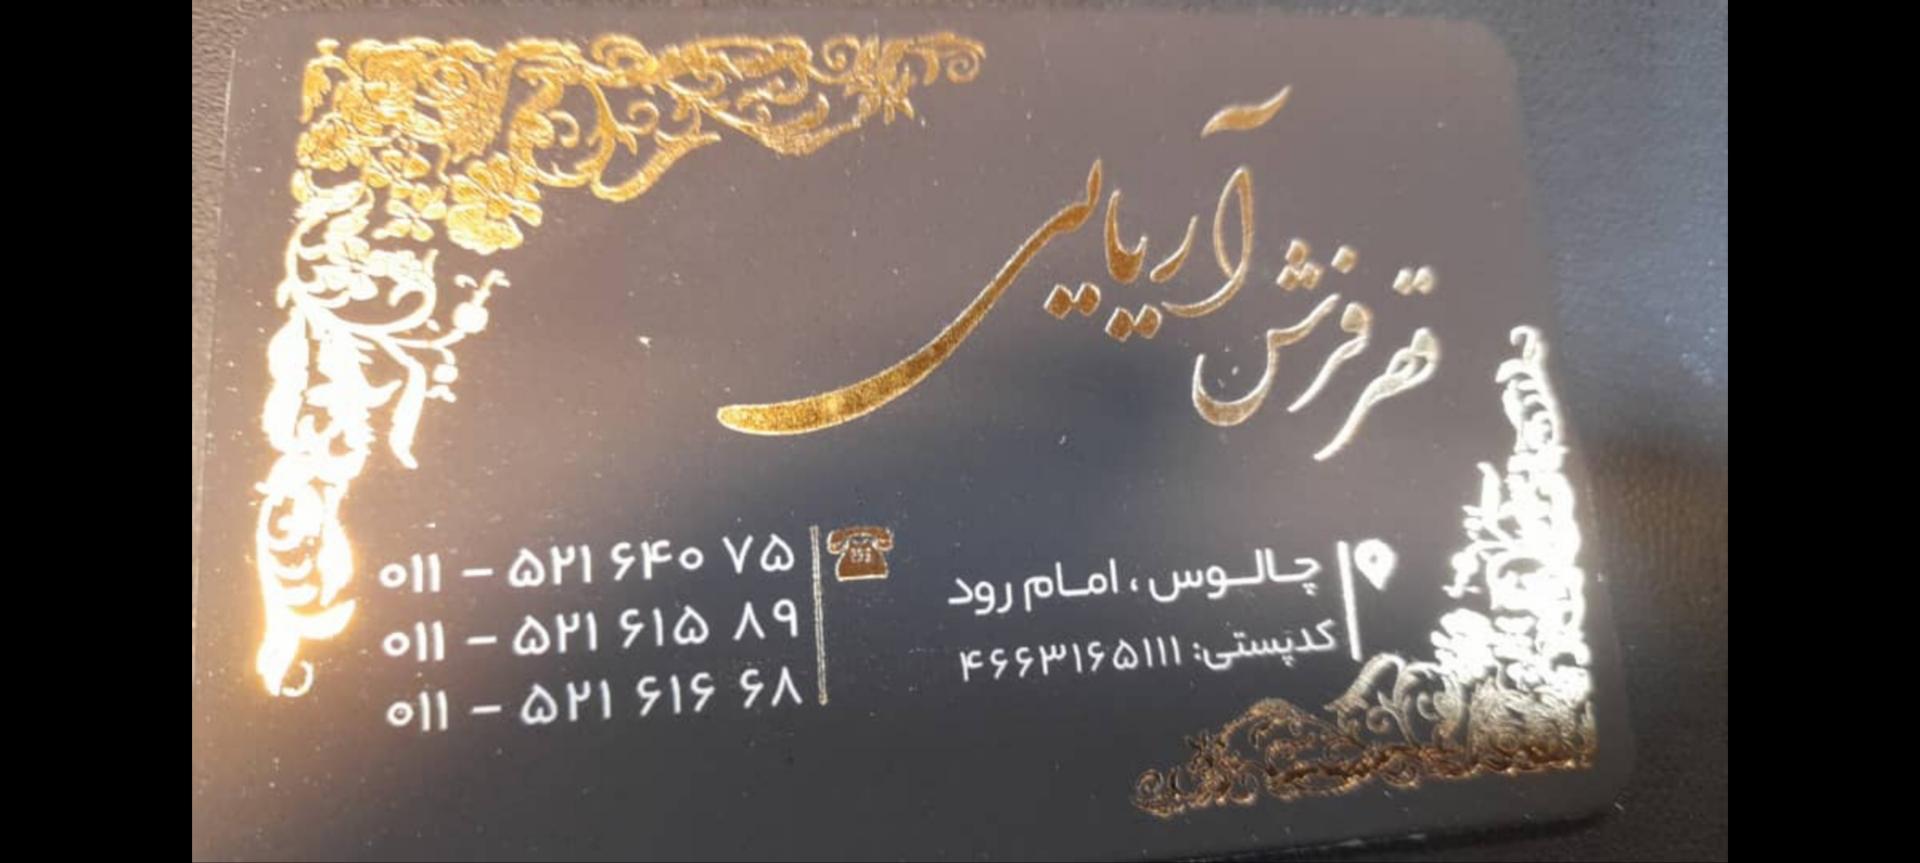 قهر فرش آریایی
چالوس، امام رود
کدپستی: ۴۶۶۳۱۶۵۱۱۱
۰۱۱ - ۵۲۱ ۶۴۰ ۷۵
۰۱۱ - ۵۲۱ ۶۱۵ ۸۹
۰۱۱ - ۵۲۱ ۶۱۶ ۶۸